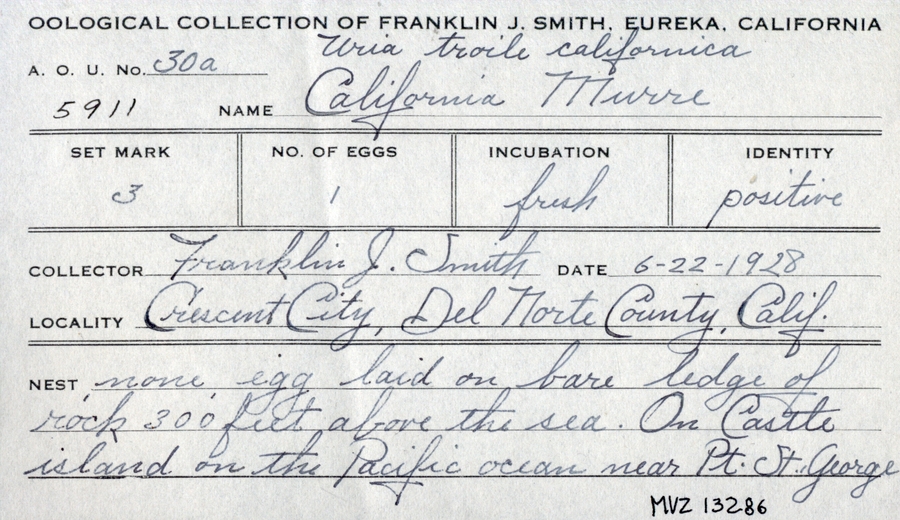 OOLOGICAL COLLECTION OF FRANKLIN J. SMITH, EUREKA, CALIFORNIA
Uria troile californica
A. O. U. No. 30a
5911 NAME California Murre
SET MARK NO. OF EGGS INCUBATION IDENTITY
3 1 fresh positive
COLLECTOR Franklin J. Smith DATE 6-22-1928
LOCALITY Crescent City, Del Norte County, Calif.
NEST none egg laid on bare ledge of
rock 300 feet above the sea. On Castle
island on the Pacific ocean near Pt. St. George
MVZ 13286